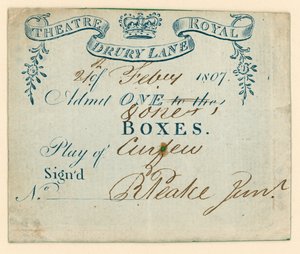 THEATRE ROYAL
DRURY LANE
of Feby 1807.
Admit ONE to the
BOXES.
Play of Curfew
Sign'd
R Peake Junr.
No.